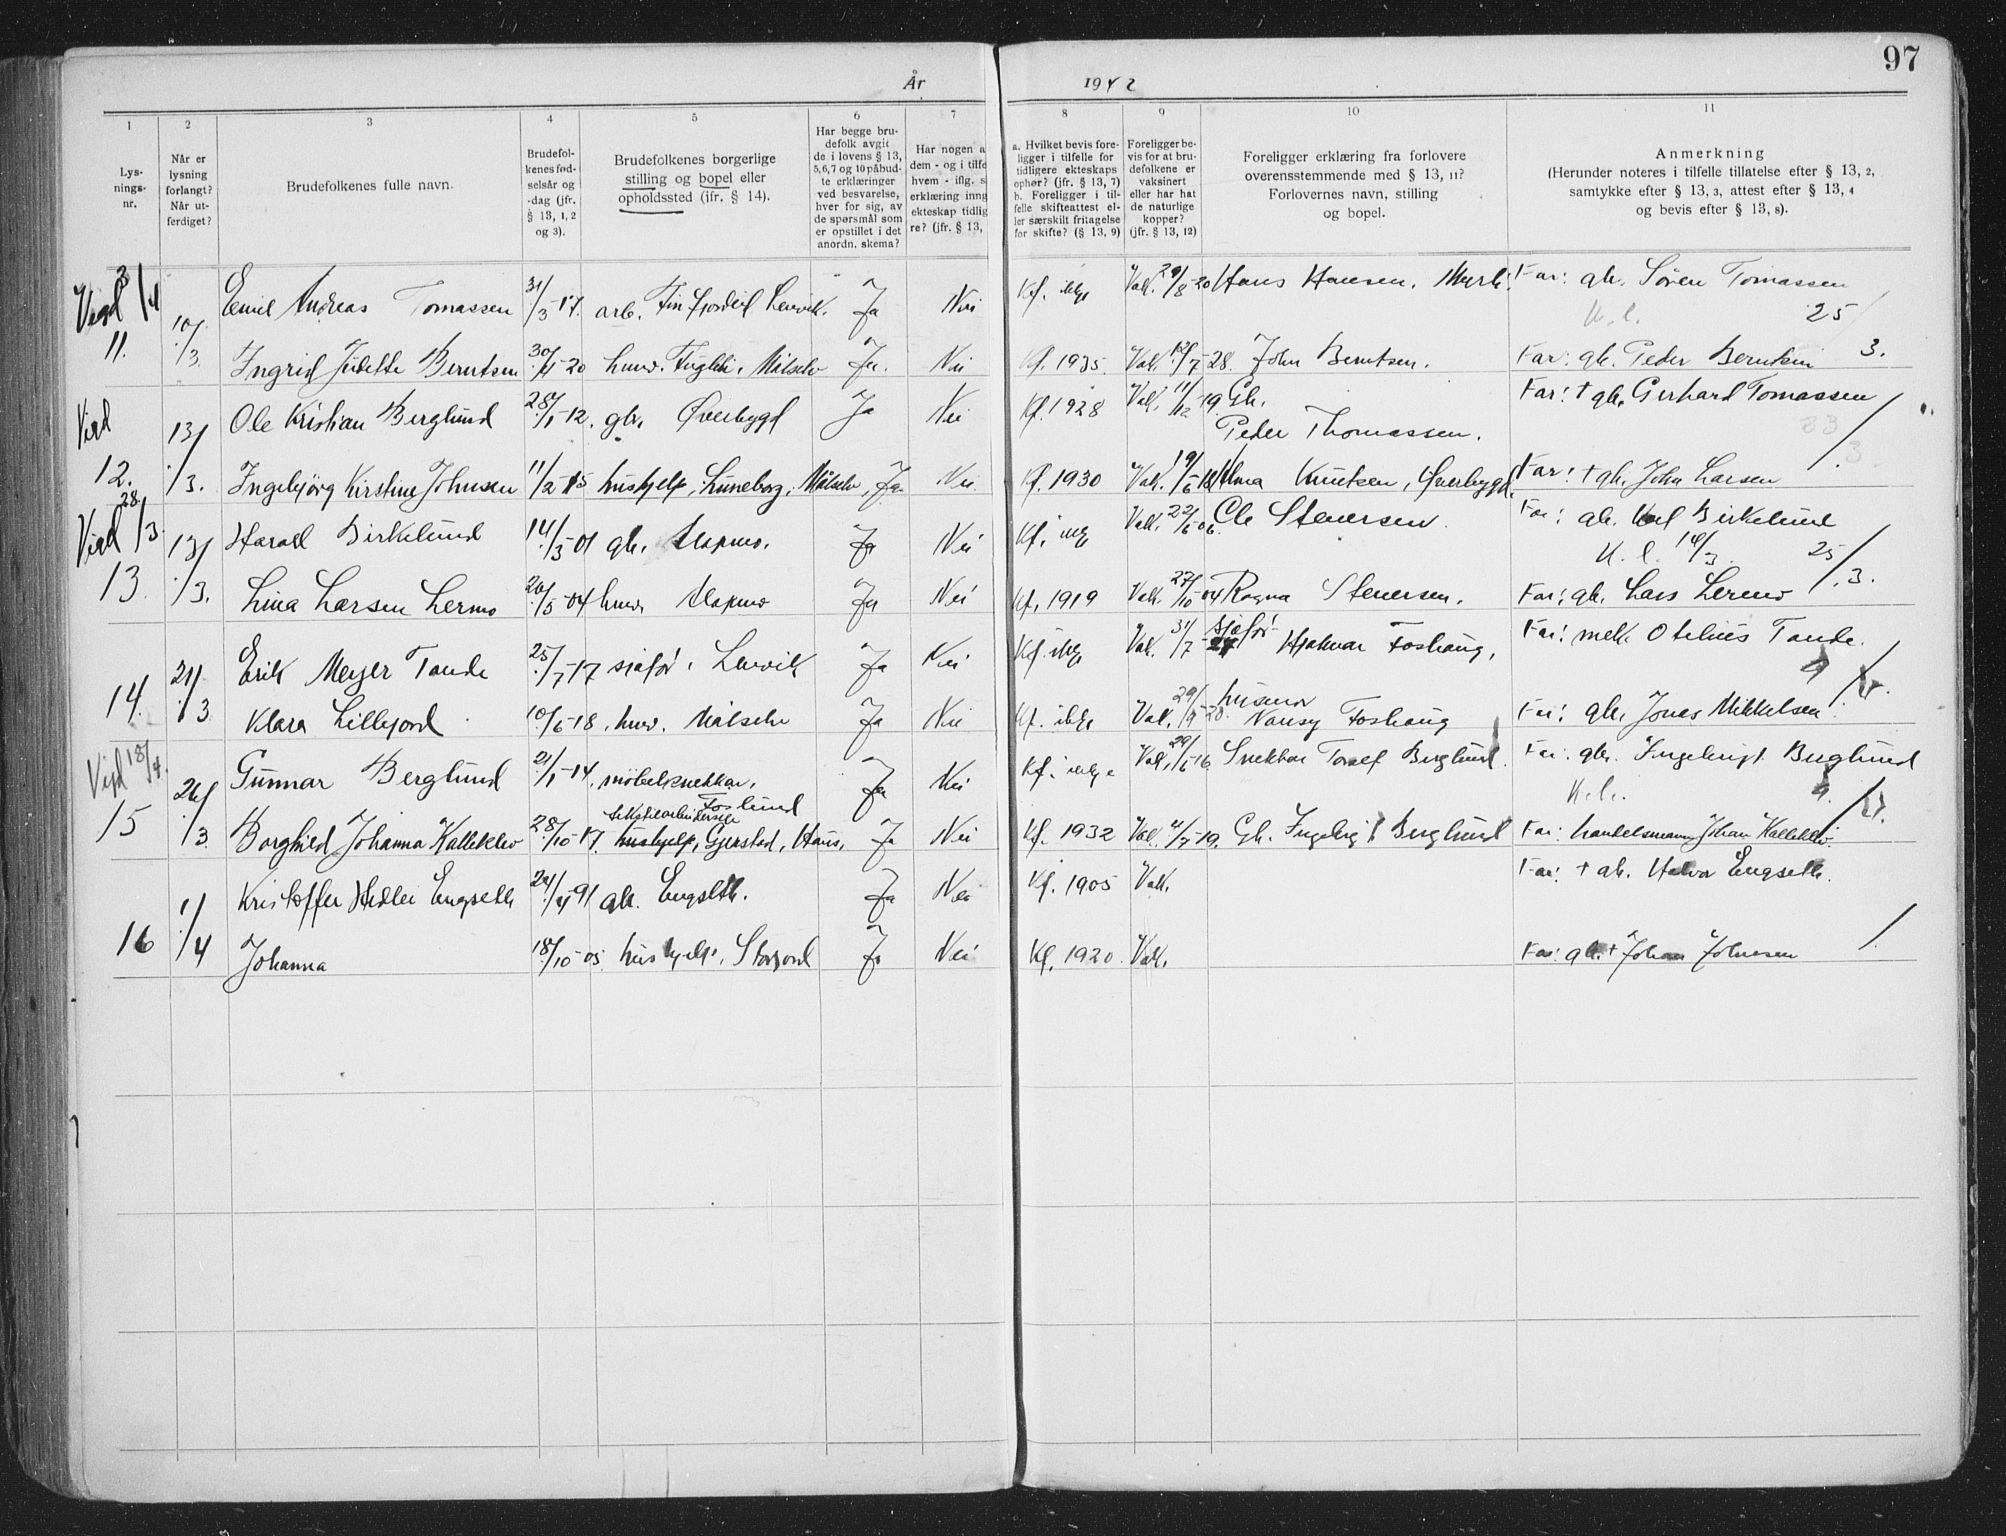 97
År 1942
1 2 3 4 5 6 7 8 9 10 11
Lys-
nings-
nr.
Når er
lysning
forlangt?
Når ut-
ferdiget?
Brudefolkenes fulle navn.
Brudefol-
kenes fød-
selsår og
-dag (jfr.
§ 13, 1, 2
og 3).
Brudefolkenes borgerlige
stilling og bopel eller
opholdssted (jfr. § 14).
Har begge bru-
defolk avgit
de i lovens § 13,
5,6,7 og 10 påbud-
te erklæringer
ved besvarelse,
hver for sig, av
de spørsmål som
er opstillet i det
anordn. skema?
Har nogen a
dem - og i tilfe
hvem - iflg. s
erklæring inng
ekteskap tidlig
re? (jfr. § 13,
a. Hvilket bevis fore-
ligger i tilfelle for
tidligere ekteskaps
ophør? (jfr. § 13, 7)
b. Foreligger i til-
felle skifteattest el-
ler særskilt fritagelse
for skifte? (§ 13, 9)
Foreligger be-
vis for at bru-
defolkene er
vaksinert
eller har hat
de naturlige
kopper?
(jfr. § 13, 12)
Foreligger erklæring fra forlovere
overensstemmende med § 13, 11?
Forlovernes navn, stilling
og bopel.
Anmerkning
(Herunder noteres i tilfelle tillatelse efter § 13, 2,
samtykke efter § 13, 3, attest efter § 13, 4
og bevis efter § 13, 8).
Vigd 3/4 10/ Emil Andreas Tomassen 31/3-17. arb. Finfjordeid, Lenvik. Ja Nei Kf. ikke Vak. 29/8-20 Hans Hansen, Far: gb. Søren Tomassen
U.l. 25/
11. /3. Ingrid Judette Berntsen 30/11-20 hunv. Fuglli, Målselv Ja. Nei Kf. 1935. Vak. /7-28. John Berntsen. Far: gb. Peder Berntsen 3.
Vigd 13/ Ole Kristian Berglund 28/1-12. gb. Øverbygd Ja Nei Kf. 1928 Vak. 11/12-19 Gb. Far: + gb. Gerhard Tomassen
Peder Thomassen.
12. /3. Ingebjørg Kirstine Johnsen 11/2-15 hushjelp, Luneborg, Målselv, Ja. Nei Kf. 1930 Vak. 19/6-18 Knutsen, Øverbygd. Far: + gb. John Larsen 3
Vigd 28/3. 13/ Harald Birkelund 14/3-01 gb. Mapmo. Ja Nei Kf. ikke Vak. 22/6-06. Ole Stenersen. Far: gb. Birkelund
U.l. 14/3. 25/
13. /3. Lina Larsen Lermo 26/5-04 hunv. Mapmo Ja Nei Kf. 1919 Vak. 27/10-04 Ragna Stenersen. Far: gb. Lars Lermo 3.
21/ Erik Meyer Tande 25/7-17 sjåfør, Lenvik Ja Nei Kf. ikke Vak. 31/7-27 sjåfør Hjalmar Foshaug, Far: mek. Otelius Tande.
14. /3 Klara Lillefjord 10/6-18. hunv. Målselv Ja Nei Kf. ikke Vak. 29/9-20. husmor Nansy Foshaug Far: gb. Jonas Mikkelsen
Vigd 18/4. 26/ Gunnar Berglund 21/1-14. møbelsnekker, Foslund Ja Nei Kf. ikke Vak. 29/6-16. Snekker Toralf Berglund. Far: gb. Ingebrigt Berglund
U.l.
tekstilarbeiderske
15 /3. Borghild Johanna Kalleklev 28/10-17. hushjelp, Gjerstad, Haus, Ja Nei Kf. 1932 Vak. /7-19. Gb. Ingebrigt Berglund Far: handelsmann Johan Kalleklev.
1/ Kristoffer Hedlei Engseth 24/4-91 gb. Engseth. Ja Nei Kf. 1905 Vak. Far: + gb. Halvor Engseth.
16 /4 Johanna 18/10-05 hushjelp, Storjord Ja Nei Kf. 1920. Vak. Far: gb. + Johan Johnsen